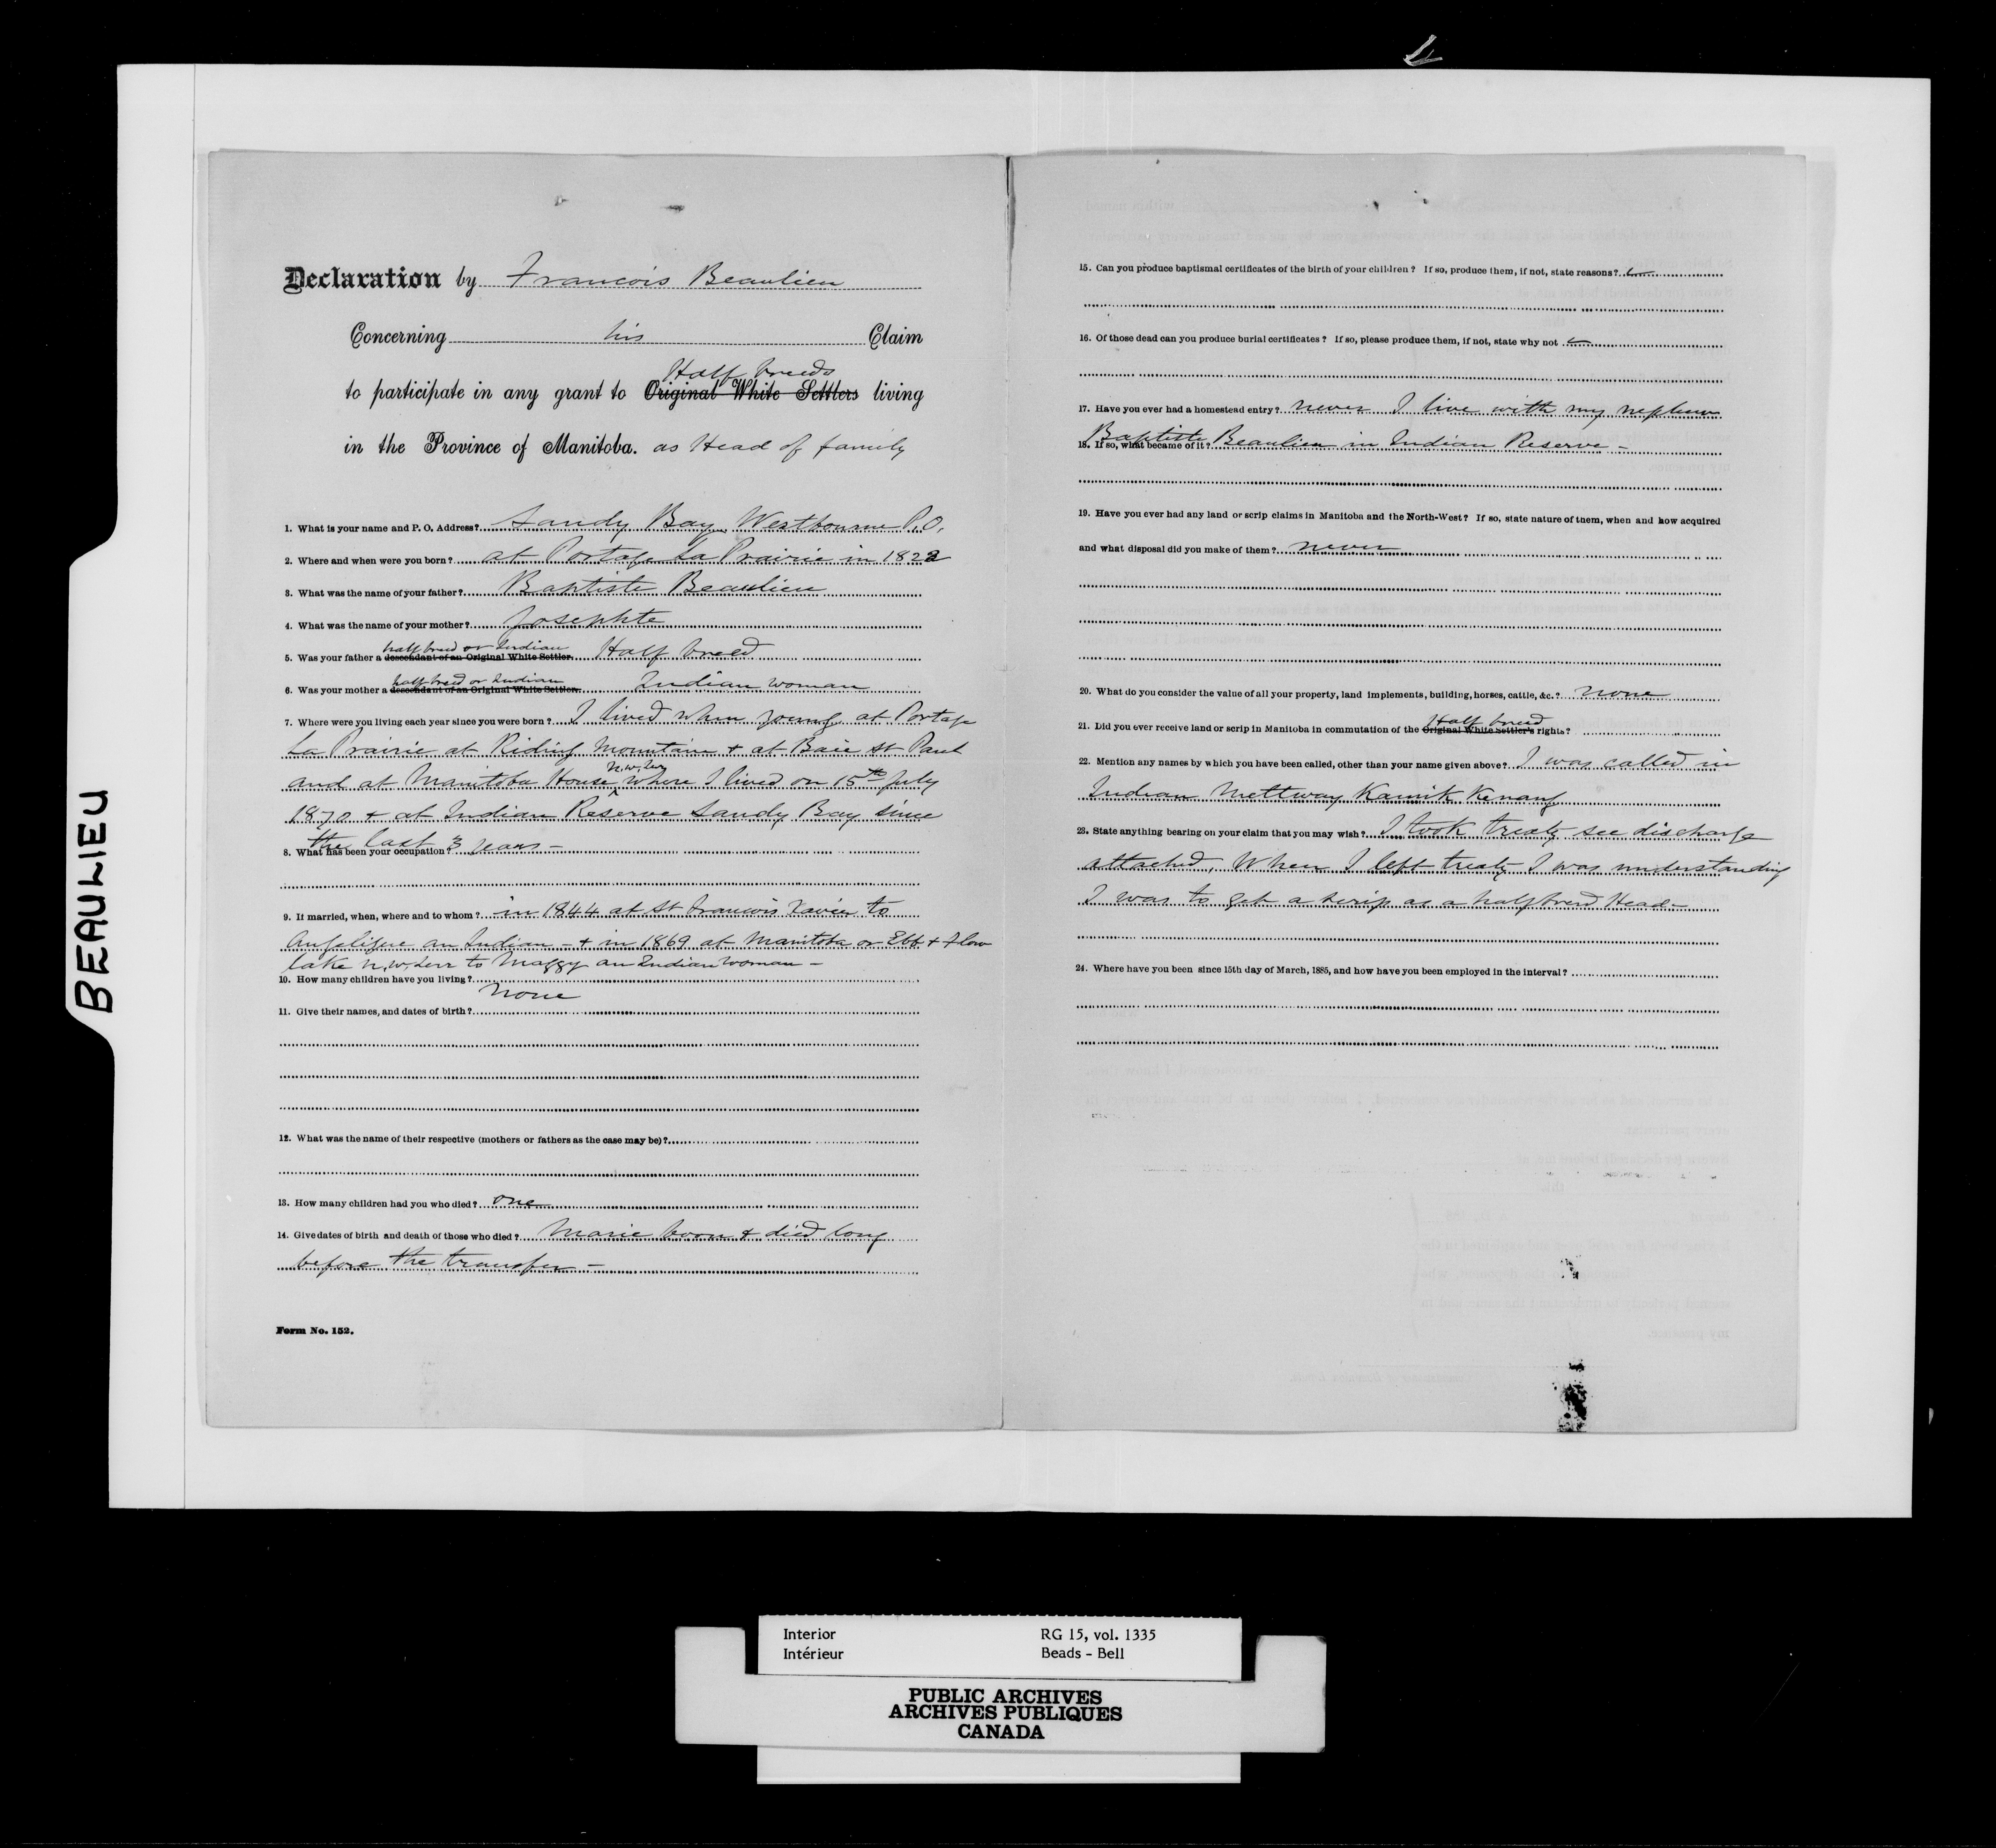 BEAULIEU
Declaration by Francois Beaulieu
Concerning his Claim
Half breeds
to participate in any grant to Original White Settlers living
in the Province of Manitoba. as Head of family
1. What is your name and P. O. Address? Sandy Bay, Westbourne P.O.
2. Where and when were you born? at Portage La Prairie in 1822
3. What was the name of your father? Baptiste Beaulieu
4. What was the name of your mother? Josephte
half breed or Indian
5. Was your father a descendant of an Original White Settler. Half breed
half breed or Indian
6. Was your mother a descendant of an Original White Settler. Indian woman
7. Where were you living each year since you were born? I lived when young at Portage
La Prairie at Riding Mountain & at Baie St Paul
N.W.Ter
and at Manitoba House where I lived on 15th July
1870 & at Indian Reserve Sandy Bay since
the last 3 years -
8. What has been your occupation?
9. If married, when, where and to whom? in 1844 at St Francois Xavier to
Angelique an Indian - & in 1869 at Manitoba or Ebb & Flow
lake N.W.Terr to Maggy an Indian woman -
10. How many children have you living?
none
11. Give their names, and dates of birth?
12. What was the name of their respective (mothers or fathers as the case may be)?
13. How many children had you who died? one
14. Give dates of birth and death of those who died? Marie born & died long
before the transfer -
Form No. 152.
15. Can you produce baptismal certificates of the birth of your children? If so, produce them, if not, state reasons?
16. Of those dead can you produce burial certificates? If so, please produce them, if not, state why not
17. Have you ever had a homestead entry? never I live with my nephew
Baptiste Beaulieu in Indian Reserve -
18. If so, what became of it?
19. Have you ever had any land or scrip claims in Manitoba and the North-West? If so, state nature of them, when and how acquired
and what disposal did you make of them? never
20. What do you consider the value of all your property, land implements, building, horses, cattle, &c.? none
Half breed
21. Did you ever receive land or scrip in Manitoba in commutation of the Original White Settler's rights?
22. Mention any names by which you have been called, other than your name given above? I was called in
Indian Mettway Kamik Kenang
23. State anything bearing on your claim that you may wish? I took treaty see discharge
attached, When I left treaty I was understanding
I was to get a scrip as a halfbreed Head -
24. Where have you been since 15th day of March, 1885, and how have you been employed in the interval?
Interior RG 15, vol. 1335
Intérieur Beads - Bell
PUBLIC ARCHIVES
ARCHIVES PUBLIQUES
CANADA